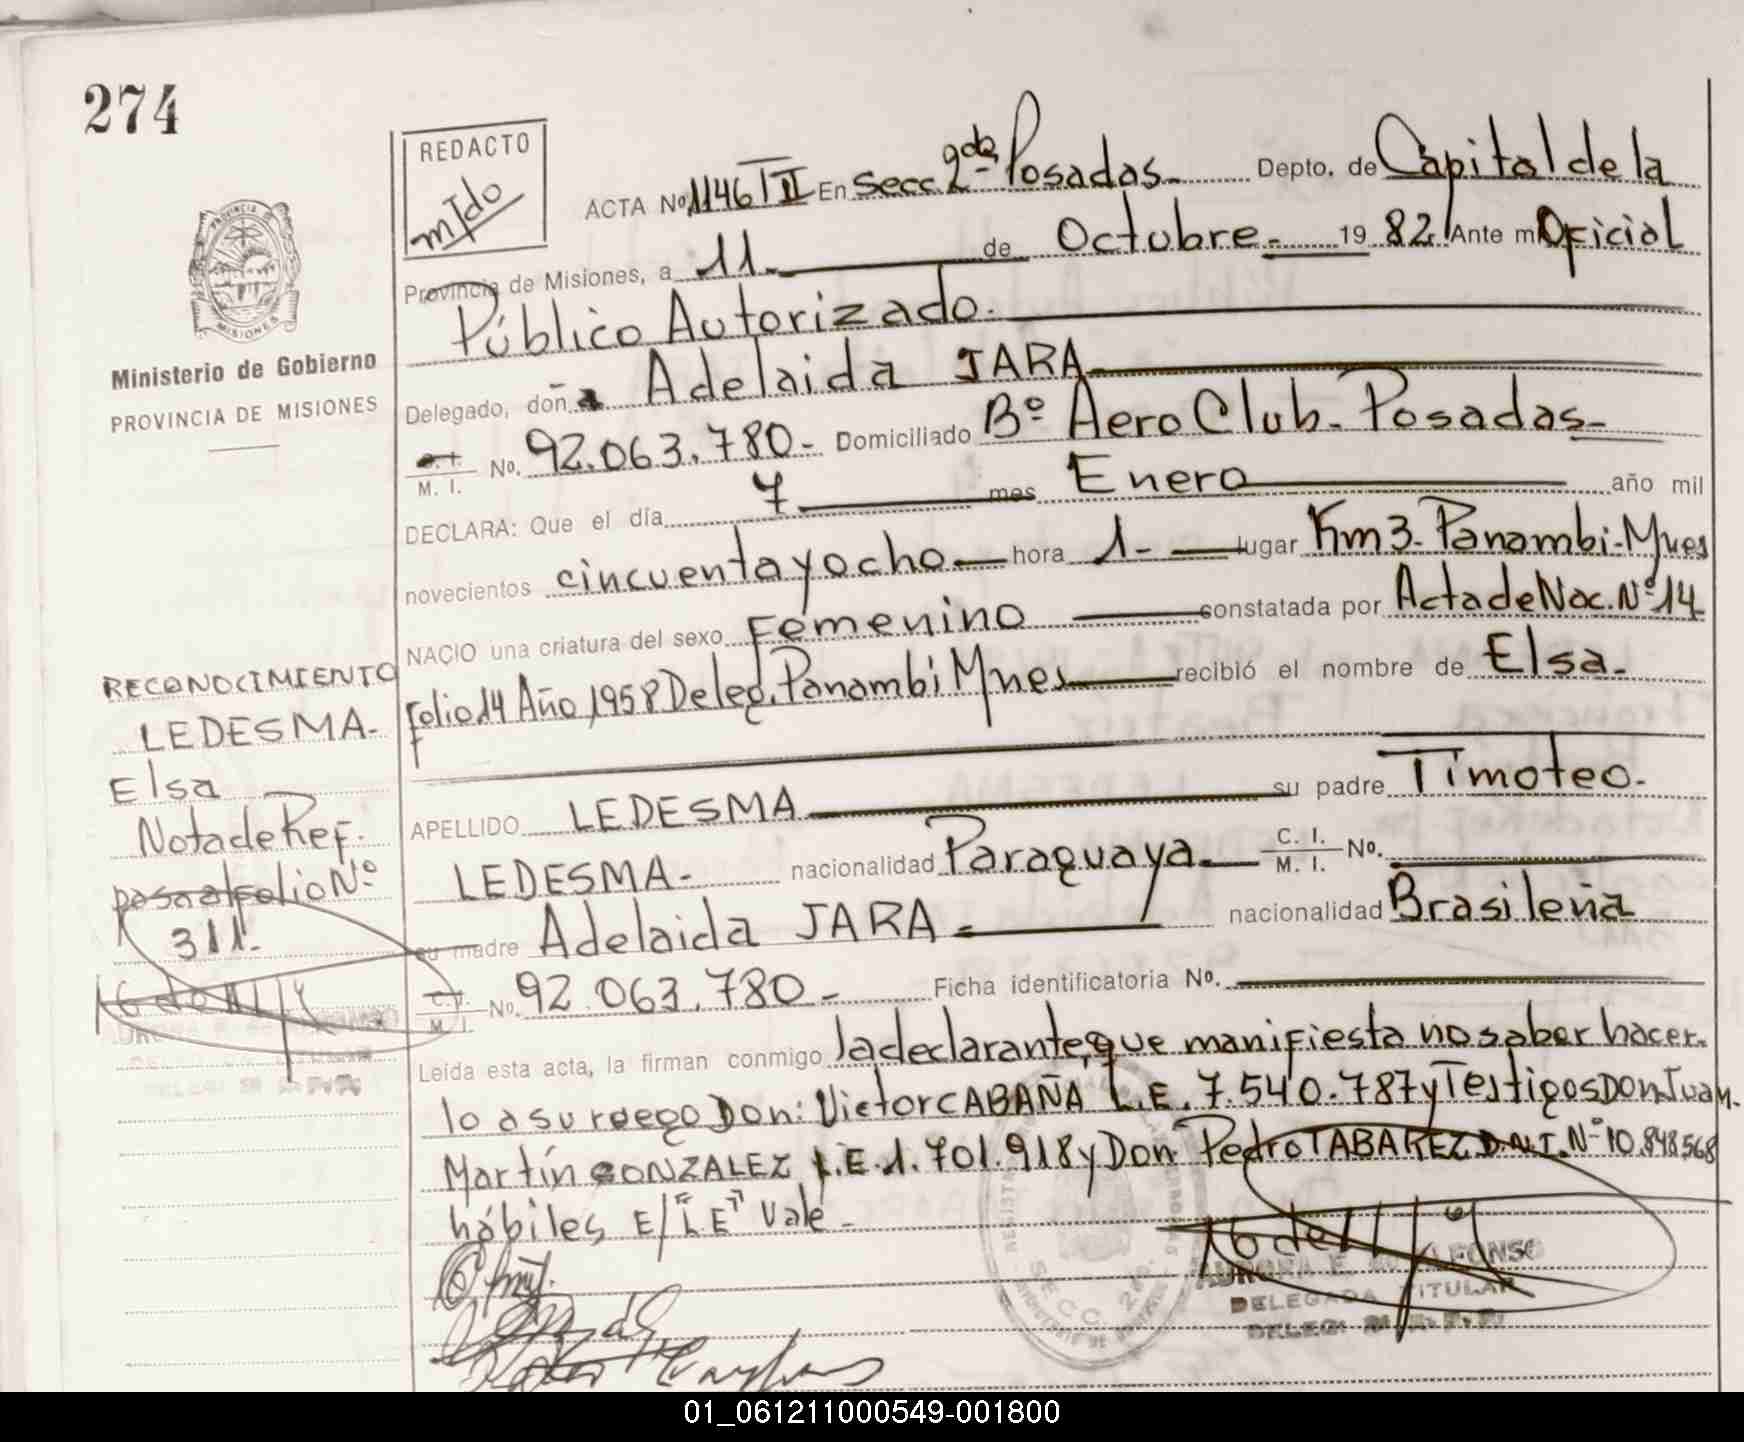 274
REDACTO
ACTA No. 1146 T II En Secc 2da Posadas.- Depto. de Capital de la
Provincia de Misiones, a 11.- de Octubre.- 19 82. Ante mi Oficial
Público Autorizado.
Delegado, doña Adelaida JARA
C. I. M. I. No. 92.063.780- Domiciliado Bº Aero Club- Posadas-
DECLARA: Que el día 7 mes Enero año mil
novecientos cincuenta y ocho hora 1- lugar Km 3- Panambi- Mnes
NACIO una criatura del sexo Femenino constatada por Acta de Nac. Nº 14
folio 14 Año 1958 Deleg. Panambi Mnes recibió el nombre de Elsa.
APELLIDO LEDESMA su padre Timoteo.
LEDESMA- nacionalidad Paraguaya C. I. M. I. No.
su madre Adelaida JARA- nacionalidad Brasileña
C. I. M. I. No. 92.063.780- Ficha identificatoria No.
Leída esta acta, la firman conmigo la declarante, que manifiesta no saber hacer-
lo a su ruego Don: Victor CABAÑA L.E. 7.540.787 y Testigos Don Juan
Martín GONZALEZ L.E. 1.701.918 y Don Pedro TABAREZ D.N.I. Nº 10.848568
hábiles E/"L.E" Vale-
MISIONES
Ministerio de Gobierno
PROVINCIA DE MISIONES
RECONOCIMIENTO
LEDESMA-
Elsa
Nota de Ref.
pasa al folio Nº
311-
SECC. 2da.
AURORA E.
DELEGADA TITULAR
01_061211000549-001800